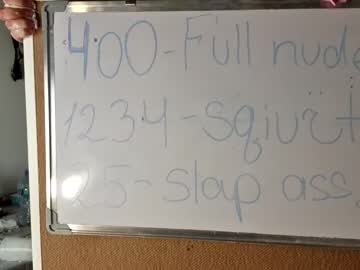 400-Full nude
1234-Sqiurt
25-slap ass